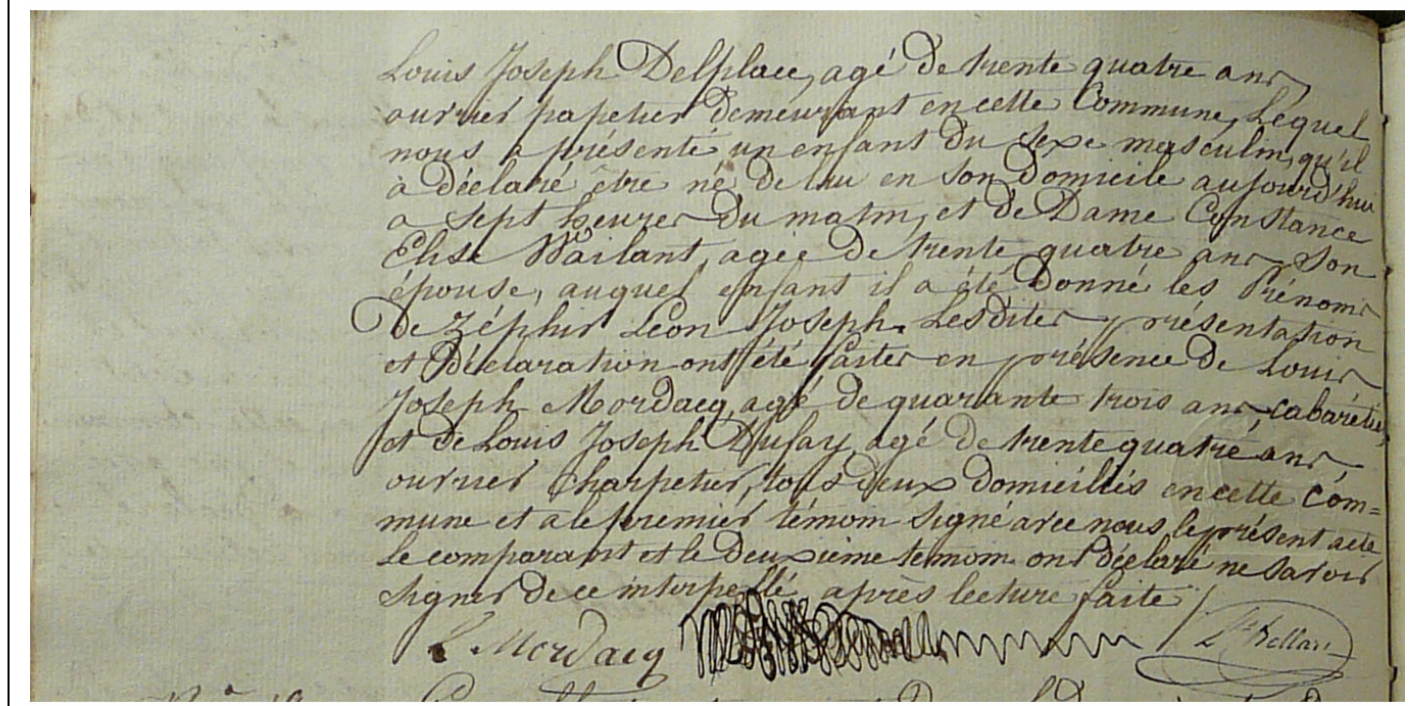 Louis Joseph Delplace, agé de trente quatre ans,
ouvrier papetier demeurant en cette Commune, Lequel
nous a présenté un enfant du sexe masculin, qu'il
à déclaré être né de lui en son domicile aujourd'hui
a sept heures du matin, et de Dame Constance
Elise Wailant, agée de trente quatre ans son
épouse, auquel enfant il a été donné les Prénoms
de Zéphir Léon Joseph. Lesdites présentation
et déclaration ont été faites en présence de Louis
Joseph Mordacq, agé de quarante trois ans, cabaretier,
et de Louis Joseph Dufay, agé de trente quatre ans,
ouvrier Charpetier, tous deux domiciliés en cette Com=
mune et a le premier témoin signé avec nous le présent acte
Le comparant et le deuxième temoin ont déclaré ne Savoir
Signer de ce interpellé, après lecture faite
L. Mordacq